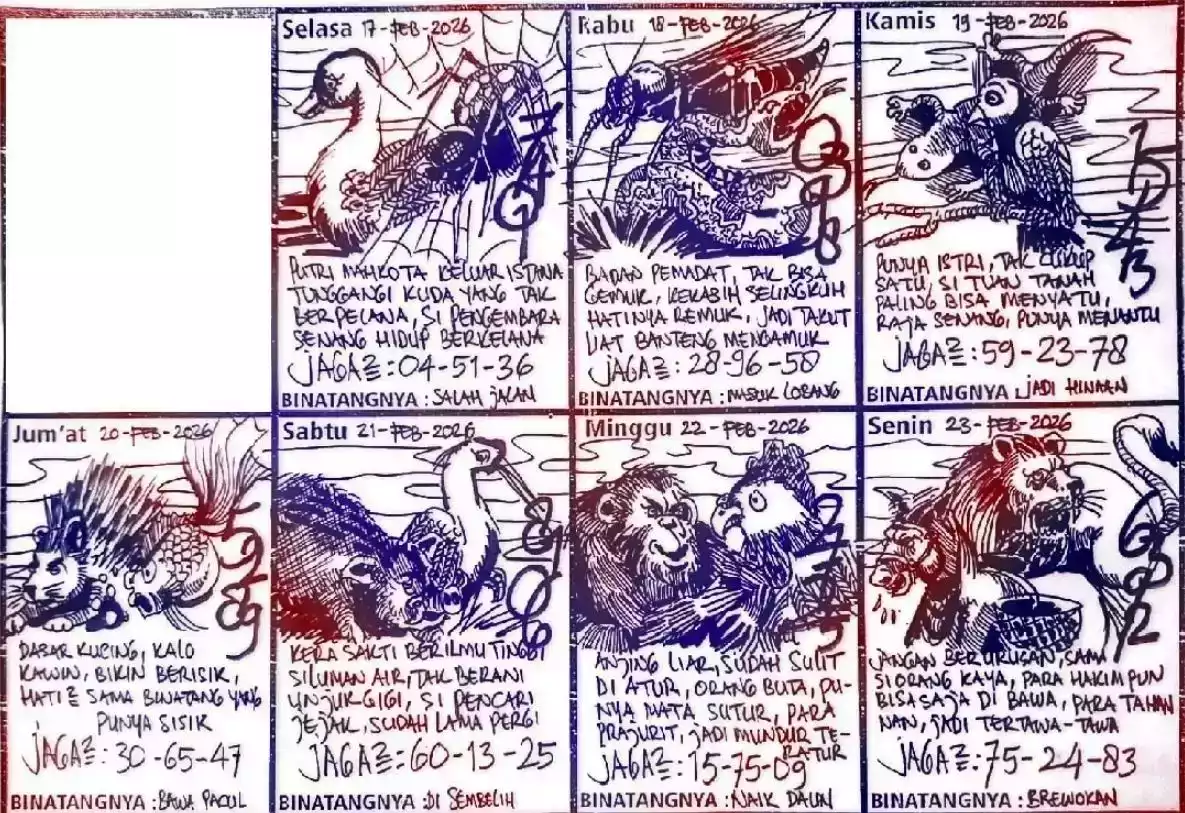 Selasa 17-FEB-2026
PUTRI MAHKOTA KELUAR ISTANA
TUNGGANGI KUDA YANG TAK
BERPELANA, SI PENGEMBARA
SENANG HIDUP BERKELANA
JAGA2:04-51-36
BINATANGNYA : SALAH JALAN
Rabu 18-FEB-2026
BADAN PEMADAT, TAK BISA
GEMUK, KEKASIH SELINGKUH
HATINYA REMUK, JADI TAKUT
LIAT BANTENG MENGAMUK
JAGA2:28-96-58
BINATANGNYA : MASUK LOBANG
Kamis 19-FEB-2026
PUNYA ISTRI, TAK CUKUP
SATU, SI TUAN TANAH
PALING BISA MENYATU,
RAJA SENANG, PUNYA MENANTU
JAGA2:59-23-78
BINATANGNYA : JADI HINAAN
Jum'at 20-FEB-2026
5
9
2
8
9
DASAR KUCING, KALO
KAWIN, BIKIN BERISIK,
HATI2 SAMA BINATANG YANG
PUNYA SISIK
JAGA2:30-65-47
BINATANGNYA : BAWA PACUL
Sabtu 21-FEB-2026
KERA SAKTI BERILMU TINGGI
SILUMAN AIR, TAK BERANI
UNJUK GIGI, SI PENCARI
JEJAK, SUDAH LAMA PERGI
JAGA2:60-13-25
BINATANGNYA : DI SEMBELIH
Minggu 22-FEB-2026
ANJING LIAR, SUDAH SULIT
DI ATUR, ORANG BUTA, PU-
NYA MATA SUTUR, PARA
PRAJURIT, JADI MUNDUR TE-
RATUR
JAGA2:15-75-09
BINATANGNYA : NAIK DAUN
Senin 23-FEB-2026
JANGAN BERURUSAN, SAMA
SIORANG KAYA, PARA HAKIM PUN
BISA SAJA DI BAWA, PARA TAHAN
NAN, JADI TERTAWA-TAWA
JAGA2:75-24-83
BINATANGNYA : BREWOKAN